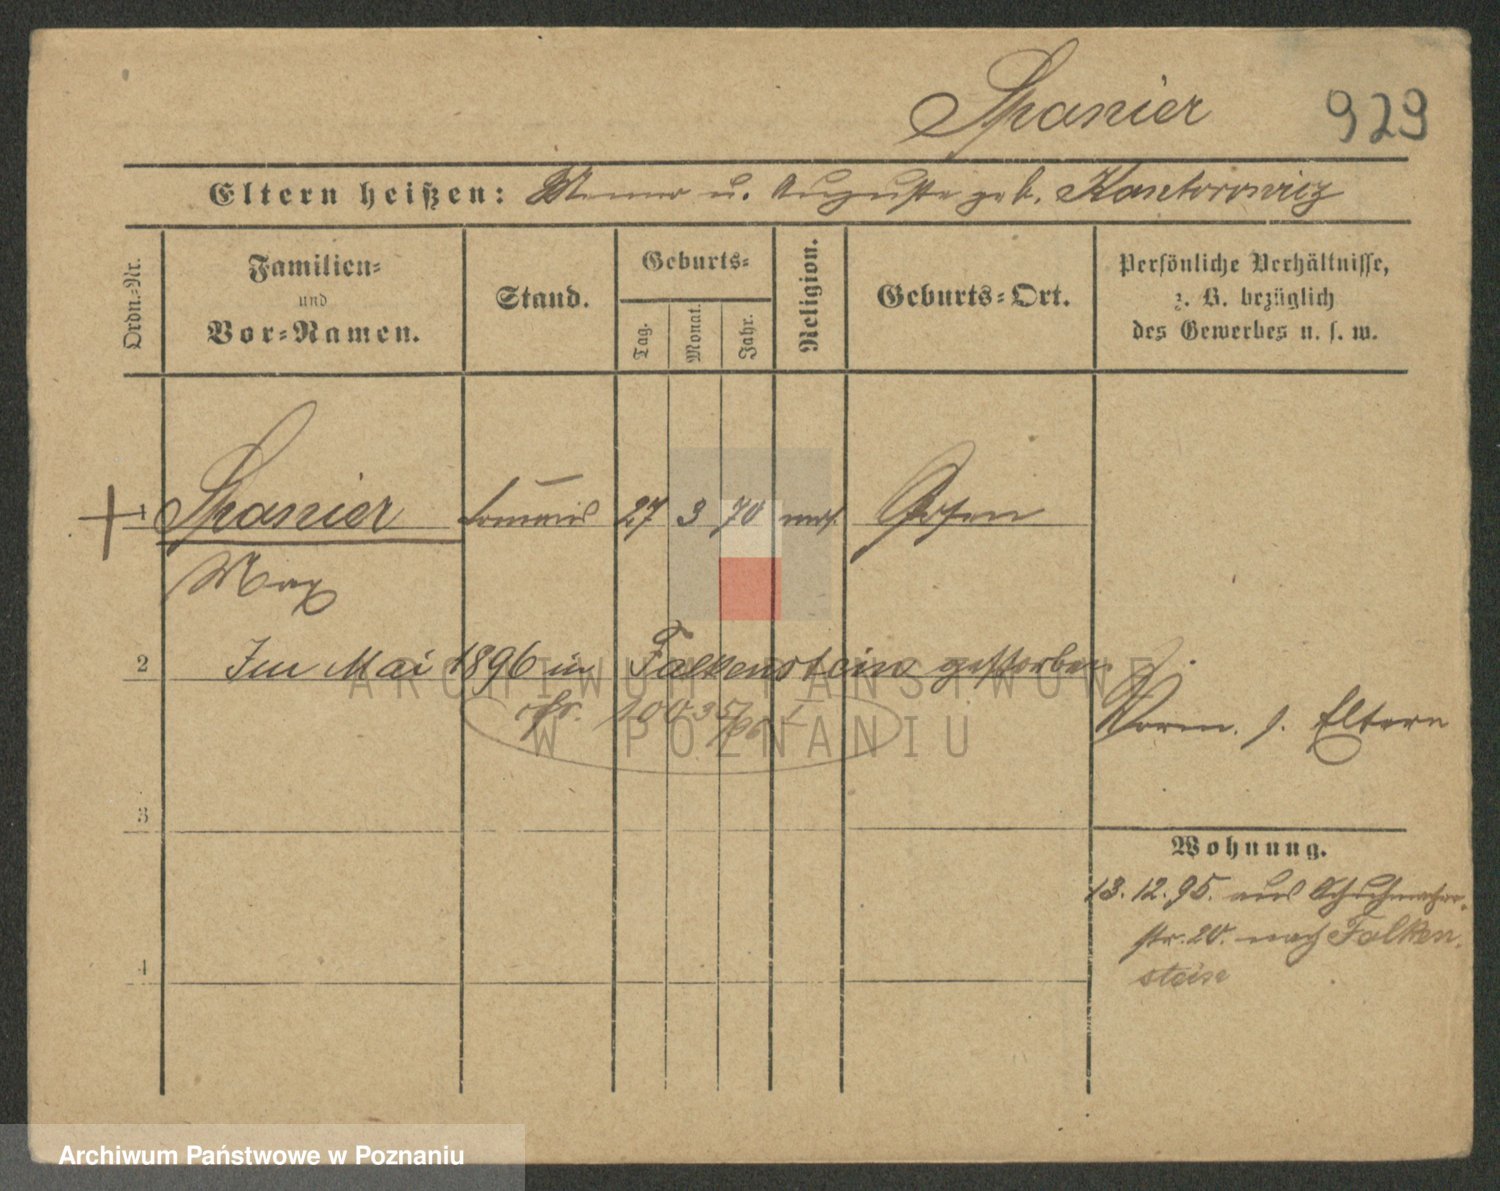 Spanier
929
Eltern heißen: u. Auguste geb. Kantorowicz
Ordn.-Nr.
Familien-
und
Vor-Namen.
Stand.
Geburts-
Tag.
Monat.
Jahr.
Religion.
Geburts-Ort.
Persönliche Verhältnisse,
z. B. bezüglich
des Gewerbes u. s. w.
1 Spanier Commis 27 3 70 mos. Posen
Max
2 Im Mai 1896 in Falkenstein gestorben
ARCHIWUM PAŃSTWOWE
W POZNANIU
Vorm. s. Eltern
3
Wohnung.
13.12.95. aus
str. 20. nach Falken-
stein
4
Archiwum Państwowe w Poznaniu